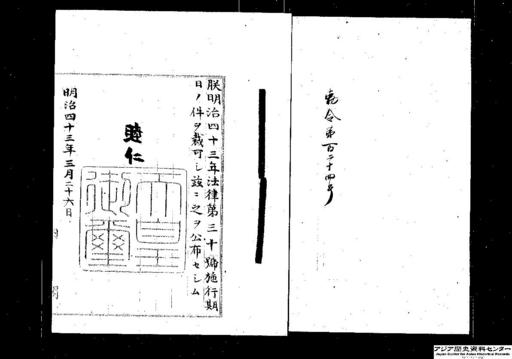 勅令第百二十四号
朕明治四十三年法律第三十號施行期
日ノ件ヲ裁可シ玆ニ之ヲ公布セシム
睦仁
天皇
御璽
明治四十三年三月二十六日
アジア歴史資料センター
Japan Center for Asian Historical Records